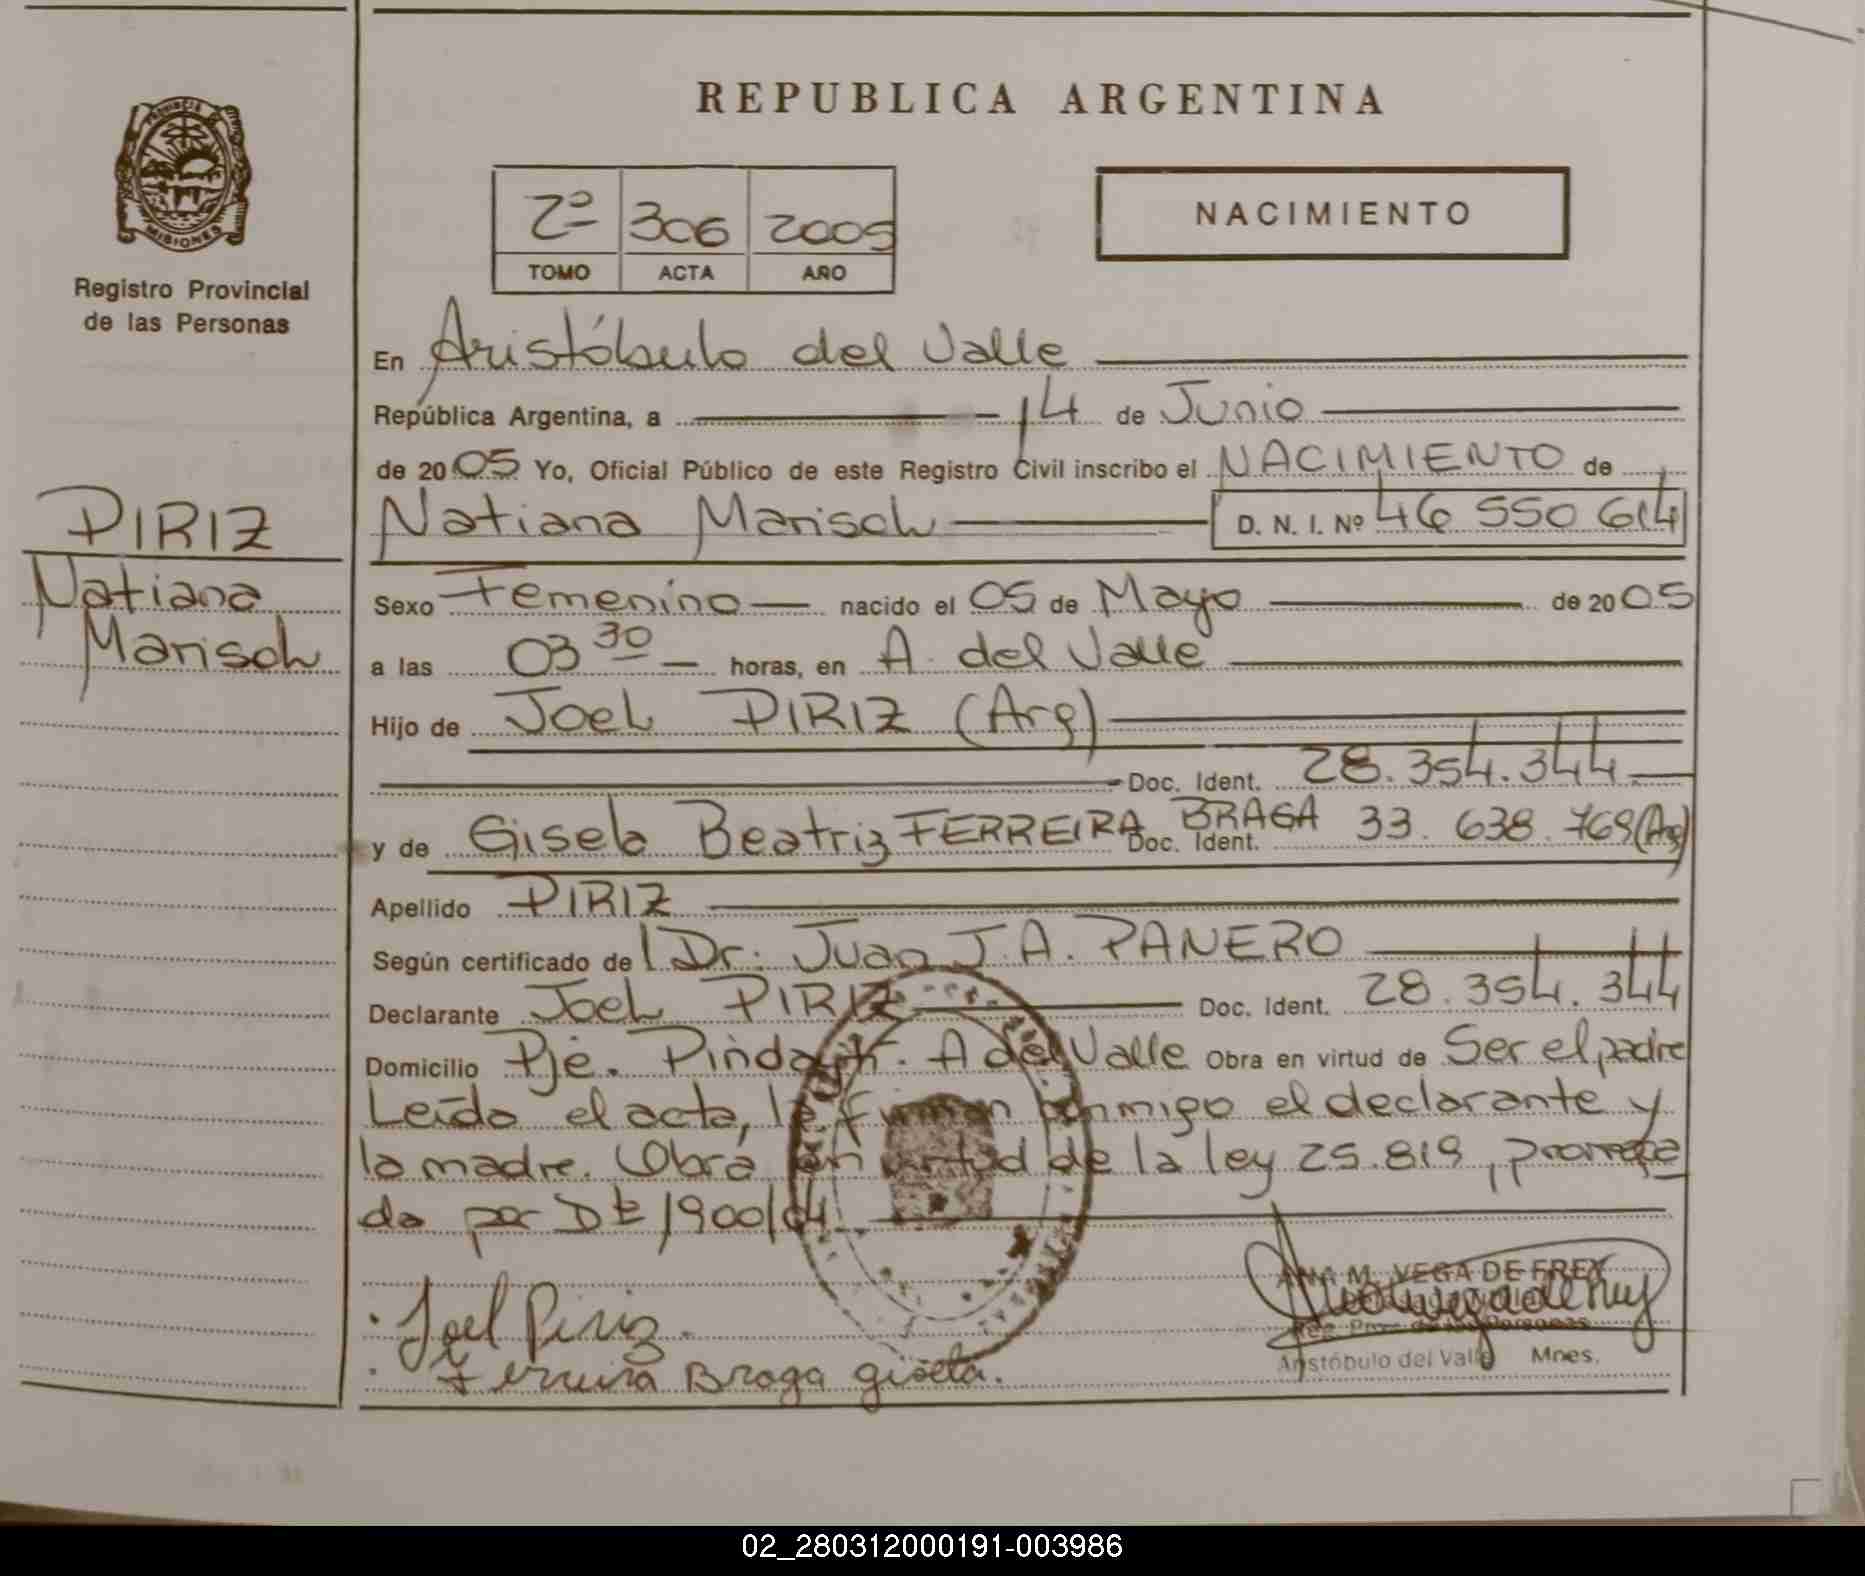 REPUBLICA ARGENTINA
PROVINCIA
MISIONES
Registro Provincial
de las Personas
2º 306 2005
TOMO ACTA AÑO
NACIMIENTO
PIRIZ
Natiana
Marisol
En Aristóbulo del Valle
República Argentina, a 14 de Junio
de 2005 Yo, Oficial Público de este Registro Civil inscribo el NACIMIENTO de
Natiana Marisol D. N. I. Nº 46 550 614
Sexo Femenino nacido el 05 de Mayo de 2005
a las 03 30 horas, en A. del Valle
Hijo de Joel PIRIZ (Arg)
Doc. Ident. 28.354.344
y de Gisela Beatriz FERREIRA BRAGA Doc. Ident. 33.638.769 (Arg)
Apellido PIRIZ
Según certificado del Dr. Juan J. A. PANERO
Declarante Joel PIRIZ Doc. Ident. 28.354.344
Domicilio Pje. Pinda A del Valle Obra en virtud de Ser el padre
Leída el acta, la firman conmigo el declarante y
la madre. Obra en virtud de la ley 25.819, prorroga
da por Dto 1900/04
Joel Piriz.
Ferreira Braga gisela.
ANA M. VEGA DE FREY
Reg. Prov. de las Personas
Aristóbulo del Valle Mnes.
02_280312000191-003986